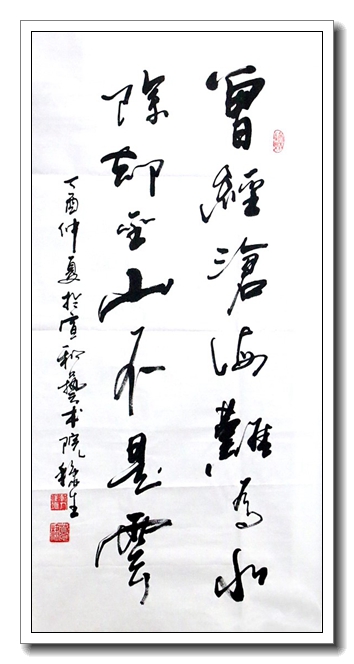 曾經滄海難為水
除却巫山不是雲
丁酉仲夏於宣和藝术院生